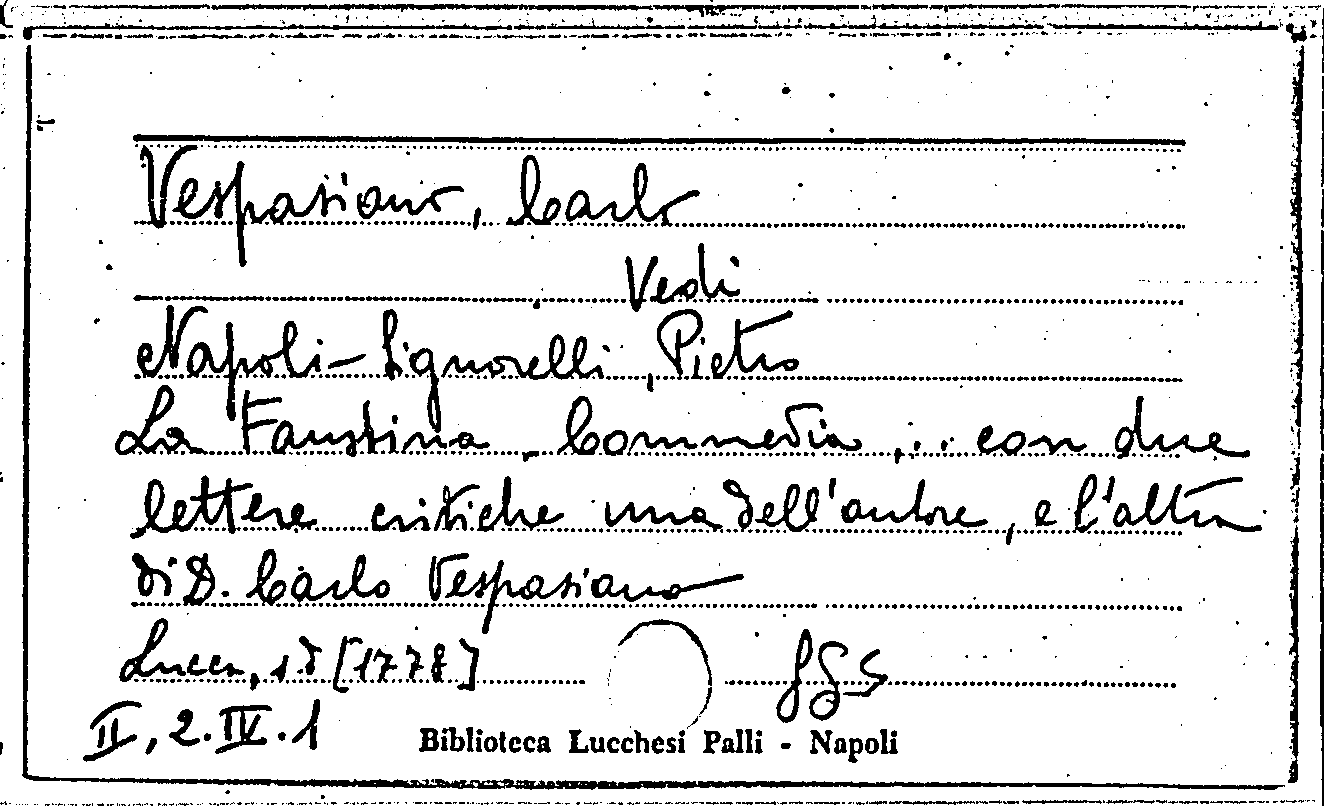 Vespasiano, Carlo
Vedi
Napoli-Signorelli, Pietro
La Faustina. Commedia ... con due
lettere critiche una dell'autore, e l'altra
di D. Carlo Vespasiano
Lucca, s.d [1778]
II, 2. IV. 1
Biblioteca Lucchesi Palli - Napoli